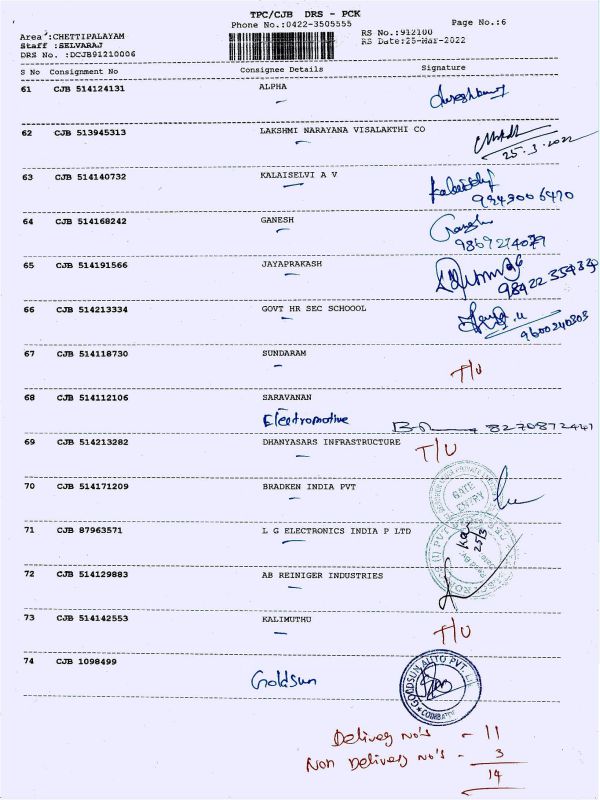 TPC/CJB DRS - PCK
Phone No.:0422-3505555
Page No.:6
Area :CHETTIPALAYAM
Staff :SELVARAJ
DRS No. :DCJB91210006
RS No.:912100
RS Date:25-Mar-2022
S No Consignment No Consignee Details Signature
61 CJB 514124131 ALPHA
62 CJB 513945313 LAKSHMI NARAYANA VISALAKTHI CO
25.3.2022
63 CJB 514140732 KALAISELVI A V
9249006470
64 CJB 514168242 GANESH
9869274079
65 CJB 514191566 JAYAPRAKASH
98422354330
66 CJB 514213334 GOVT HR SEC SCHOOOL
9600240803
67 CJB 514118730 SUNDARAM T/U
68 CJB 514112106 SARAVANAN
Electromotive 8270872441
69 CJB 514213282 DHANYASARS INFRASTRUCTURE T/U
70 CJB 514171209 BRADKEN INDIA PVT
GATE ENTRY
71 CJB 87963571 L G ELECTRONICS INDIA P LTD
25/3
72 CJB 514129883 AB REINIGER INDUSTRIES
73 CJB 514142553 KALIMUTHU T/U
74 CJB 1098499 Goldsun
GOLDSUN AUTO PVT. LTD
Delivery No's - 11
Non Delivery No's - 3
14